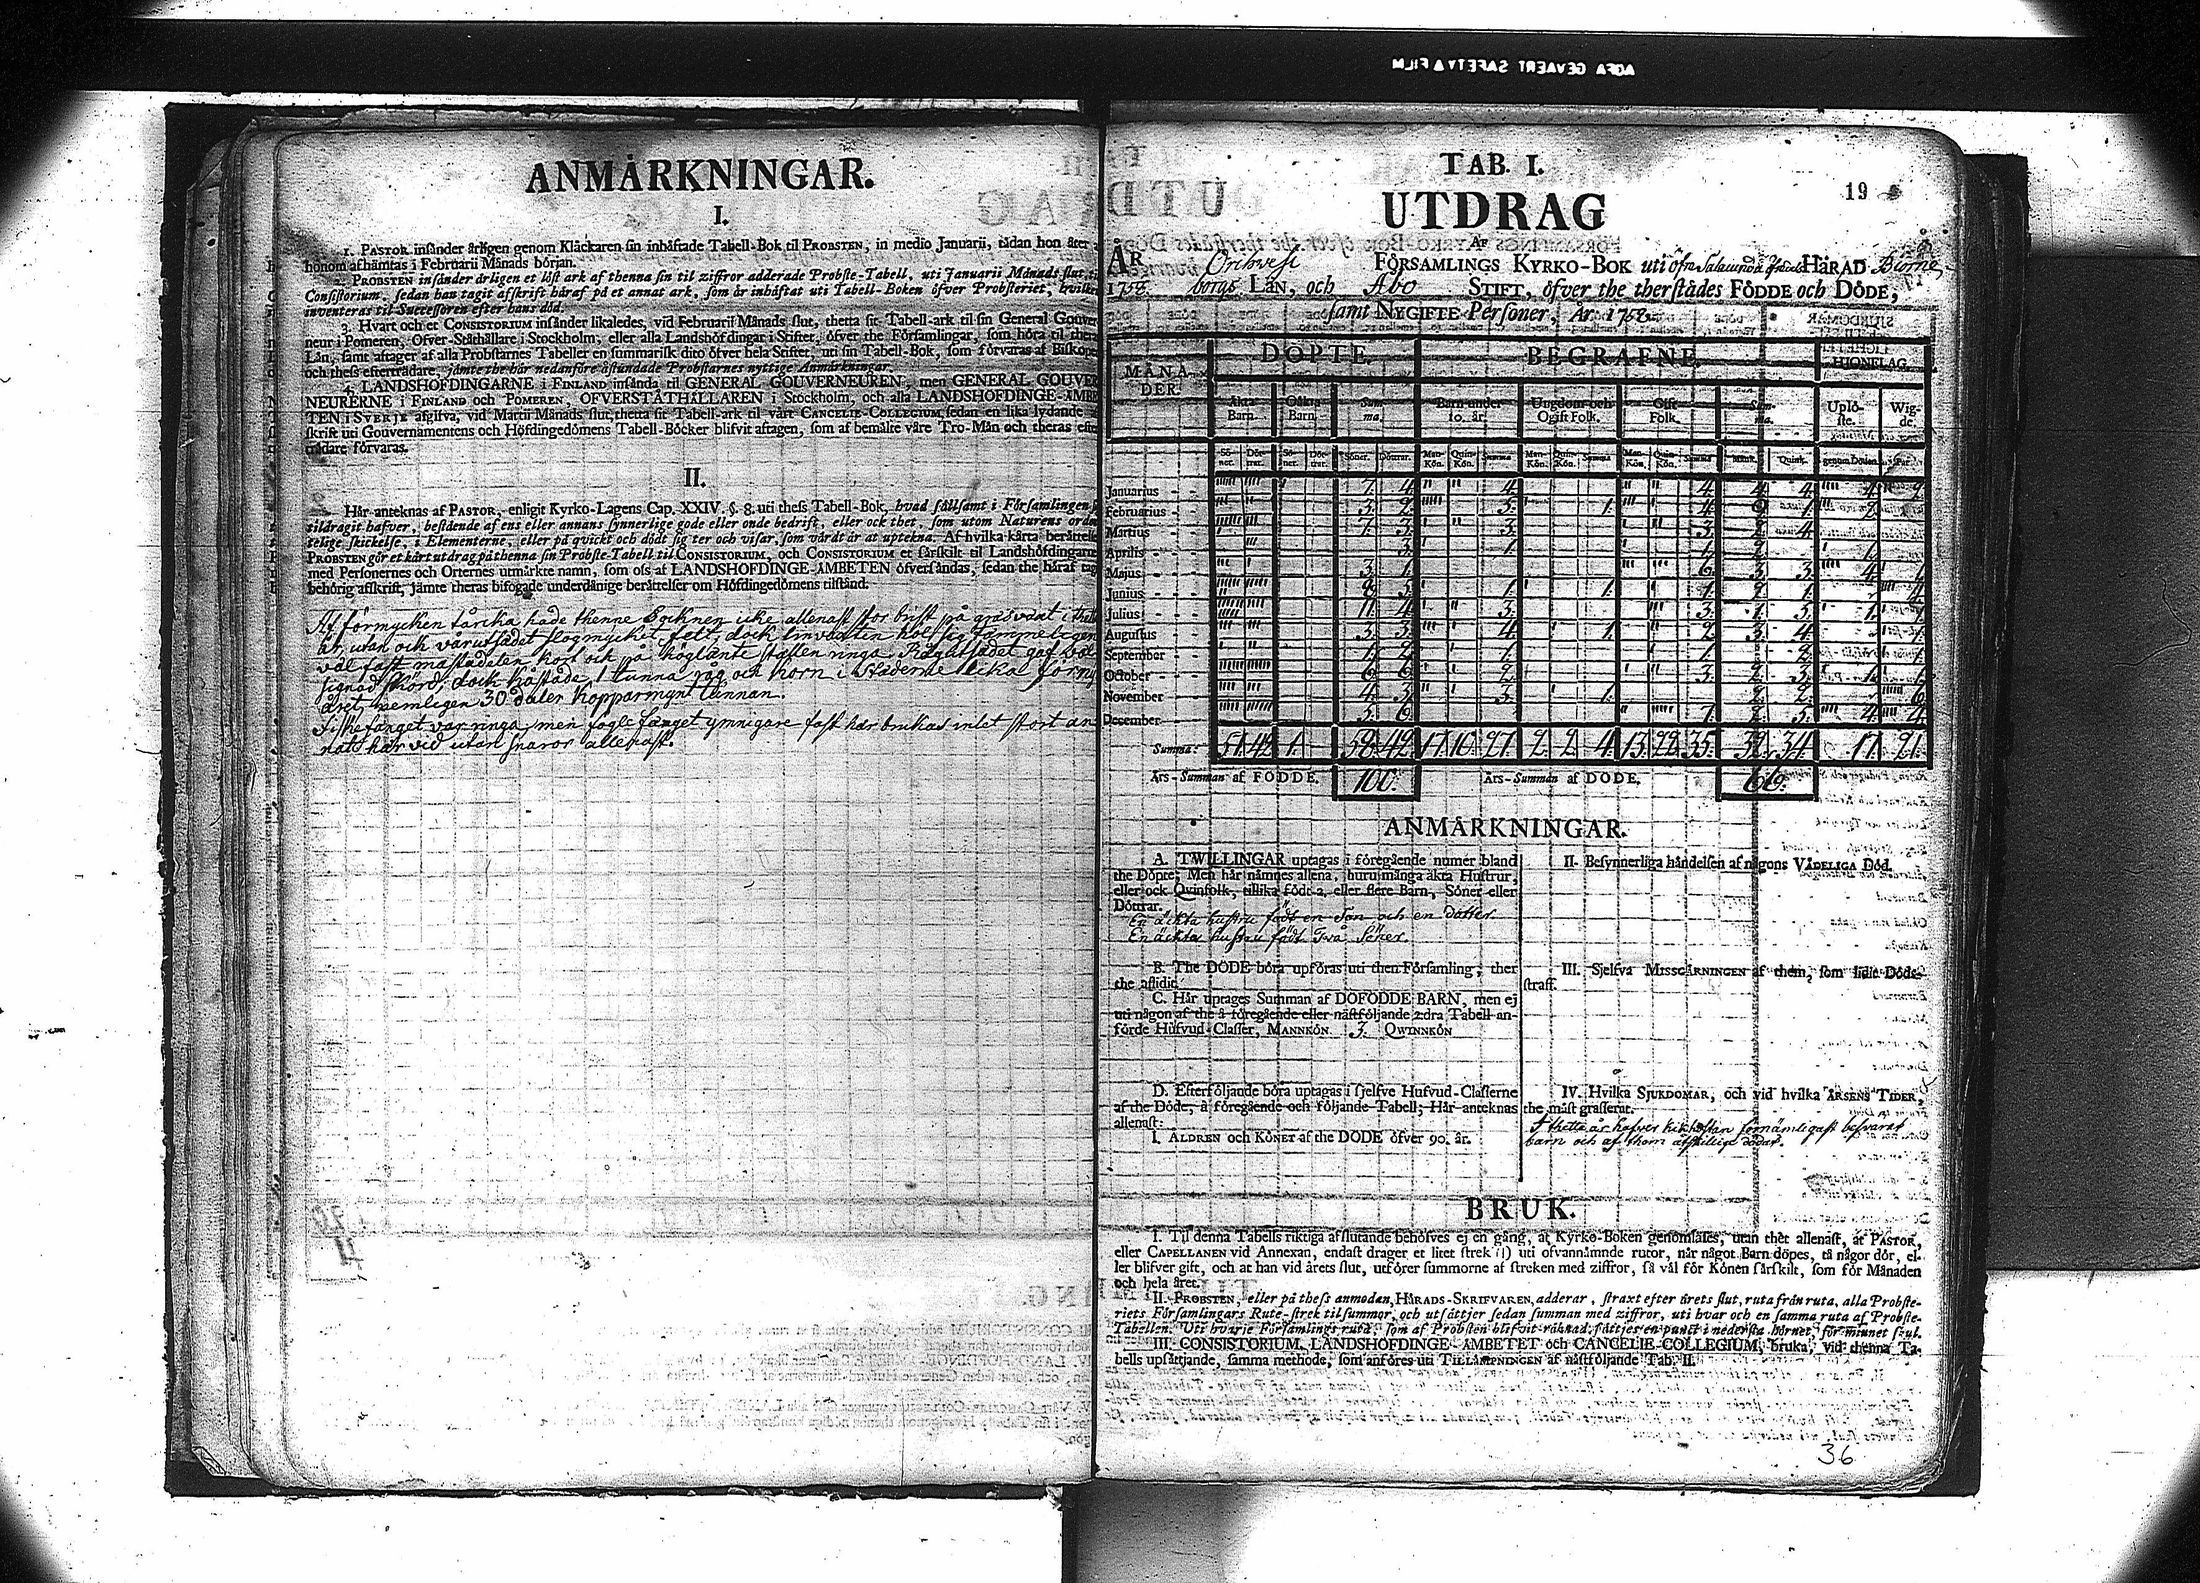 AGFA GEVAERT SAFETY FILM
ANMÄRKNINGAR.
I.
1. PASTOR insänder årligen genom Klåckaren sin inhäftade Tabell-Bok til PROBSTEN, in medio Januarii, tådan hon åter
honom afhämtas i Februarii Månads början.
2. PROBSTEN insänder årligen et löst ark af thenna sin til ziffror adderade Probste-Tabell, uti Januarii Månads slut, til
Consistorium, sedan han tagit afskrift häraf på et annat ark, som är inhäftat uti Tabell-Boken öfver Probsteriet, hvilken
inventeras til Successoren efter hans död.
3. Hvart och et CONSISTORIUM insänder likaledes, vid Februarii Månads slut, thetta sit Tabell-ark til sin General Gouver
neur i Pomeren, Öfver-Ståthållare i Stockholm, eller alla Landshöfdingar i Stifter, öfver the Församlingar, som höra til
Län, samt aftager af alla Probstarnes Tabeller en summarisk dito öfver hela Stiftet, uti sin Tabell-Bok, som förvaras af Biskopen
och thess efterträdare, jämte the här nedanföre åstundade Probstarnes nyttige Anmärkningar.
4. LANDSHÖFDINGARNE i FINLAND insända til GENERAL GOUVERNEUREN, men GENERAL GOUVER
NEURERNE i FINLAND och POMEREN, ÖFVERSTÅTHÅLLAREN i Stockholm, och alla LANDSHÖFDINGE-ÄMBE
TEN i SVERJE afgifva, vid Martii Månads slut, thetta sit Tabell-ark til vårt CANCELIE-COLLEGIUM, sedan en lika lydande af
skrift uti Gouvernamentens och Höfdingedömens Tabell-Böcker blifvit aftagen, som af bemälte våre Tro-Män och theras efter
trädare förvaras.
II.
Här anteknas af PASTOR, enligit Kyrko-Lagens Cap. XXIV. §. 8. uti thess Tabell-Bok, hvad sällsamt i Församlingen
tildragit hafver, bestående af ens eller annans synnerlige gode eller onde bedrift, eller ock thet, som utom Naturens orden
telige skickelse, i Elementerne, eller på qvickt och dödt sig ter och visar, som värdt är at uptekna. Af hvilka kårta berättelser
PROBSTEN gör et kårt utdrag på thenna sin Probste-Tabell til CONSISTORIUM, och CONSISTORIUM et särskilt til Landshöfdingarne
med Personernes och Orternes utmärkte namn, som oss af LANDSHÖFDINGE-ÄMBETEN öfversändas, sedan the häraf tagit
behörig afskrift, jämte theras bifogade underdånige berättelser om Höfdingedömens tilstånd.
Af förmycken tårcka hade thenne Socknen icke allenast stor brist på gräsväxt i thetta
år, utan och vårutsädet slog mycket felt, dock linväxten holt sig tämmeligen
väl fast måstadelen kort och på höglänte ställen ringa. Rågutsädet gaf väl
signad skörd, dock kåstade 1 tunna råg och korn i Städerne lika förra
året, nemligen 30 daler Kopparmynt tunnan.
Fiskefänget var ringa, men foglefänget ymnigare fast här brukas intet stort an
nat härvid utan snaror allenast.
TAB. I.
19
UTDRAG
AF
ÅR Orihvesi FÖRSAMLINGS KYRKO-BOK uti öfre Satacunda HÄRAD Biörne-
1758. borgs LÄN, och Åbo STIFT, öfver the therstädes FÖDDE och DÖDE,
samt NYGIFTE Personer, År 1758.
MÅNADER. DÖPTE. BEGRAFNE. HJONELAG.
Äkta Barn. Oäkta Barn. Summa. Barn under 10. år. Ungdom och Ogift Folk. Gift Folk. Summa. Uplöste. Wigde.
Söner. Döttrar. Söner. Döttrar. Söner. Döttrar. Man-Kön. Quin-Kön. Summa Man-Kön. Quin-Kön. Summa Man-Kön. Quin-Kön. Summa Mank. Quink. genom Döden. Par.
Januarius - - 7. 4. 4. 4. 4. 4. 4. 2.
Februarius - - 3. 2.
Martius - - 7. 3. 3. 3. 2. 4.
Aprilis - - 3. 1.
Majus - - 3. 1. 6. 3. 3. 4. 1.
Junius - - 5. 1. 1. 1.
Julius - - 11. 4. 3. 3. 1. 5. 1. 1.
Augustus - - 3. 3. 4. 1. 2. 3. 4. 1.
September - - 1. 2. 1. 1. 2. 1.
October - - 6. 6. 2. 3. 2. 3. 1. 1.
November - - 4. 3. 3. 1. 2. 2. 6.
December - - 5. 6. 7. 2. 5. 4. 4.
Summa: 57. 42. 1. 58. 42. 17. 10. 27. 2. 2. 4. 13. 22. 35. 32. 34. 17. 21.
Års-Summan af FÖDDE. 100. Års-Summan af DÖDE. 66.
ANMÄRKNINGAR.
A. TWILLINGAR uptagas i föregående numer bland
the Döpte; Men här nämnes allena, huru många äkta Hustrur,
eller ock Qvinfolk, tillika födt 2, eller flere Barn, Söner eller
Döttrar.
En äckta hustru födt en Son och en dotter
En äckta hustru födt två Söner.
B. The DÖDE böra upföras uti then Församling, ther
the aflidit.
C. Här uptages Summan af DÖFÖDDE BARN, men ej
uti någon af the å föregående eller nästföljande 2:dra Tabell an-
förde Hufvud-Classer, MANNKÖN 3. QWINNKÖN
D. Efterföljande böra uptagas i sjelfve Hufvud-Classerne
af the Döde, å föregående och följande Tabell; Här anteknas
allenast:
I. ÅLDREN och KÖNET af the DÖDE öfver 90. år.
II. Besynnerliga händelsen af någons VÅDELIGA Död.
III. Sjelfva MISSGÄRNINGEN af them, som lidit Döds-
straff.
IV. Hvilka SJUKDOMAR, och vid hvilka ÅRSENS TIDER,
the mäst grasserat.
I thetta år hafver kikhostan förnämligast besvärat
barn och af them åtskillige dödar.
BRUK.
I. Til denna Tabells riktiga afslutande behöfves ej en gång, at Kyrko-Boken genomläses, utan thet allenast, at PASTOR,
eller CAPELLANEN vid Annexan, endast drager et litet strek (|) uti ofvannämnde rutor, när något Barn döpes, tå någor dör, el-
ler blifver gift, och at han vid årets slut, utförer summorne af streken med ziffror, så väl för Könen särskilt, som för Månaden
och hela året.
II. PROBSTEN, eller på thess anmodan, HÄRADS-SKRIFVAREN, adderar, straxt efter årets slut, ruta från ruta, alla Probste-
riets Församlingars Rute-strek til summor, och utsättjer sedan summan med ziffror, uti hvar och en samma ruta af Probste-
Tabellen. Uti hvarje Församlings ruta, som af Probsten blifvit räknad, sättjes en punct i nedersta hörnet, för minnet skul.
III. CONSISTORIUM, LANDSHÖFDINGE-ÄMBETET och CANCELIE-COLLEGIUM, bruka, vid thenna Ta-
bells upsättjande, samma methode, som anföres uti TILLÄMPNINGEN af nästföljande Tab. II.
36